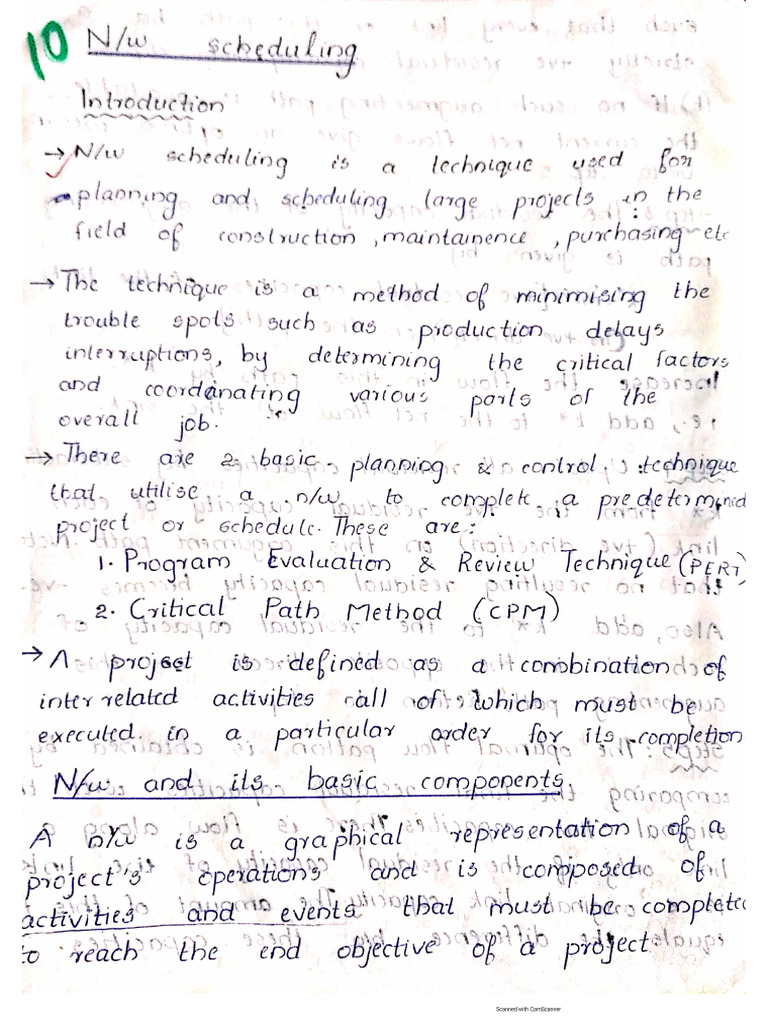 10 N/w scheduling
Introduction
→ N/w scheduling is a technique used for
planning and scheduling large projects in the
field of construction, maintainence, purchasing etc
→ The technique is a method of minimising the
trouble spots such as production delays
interruptions, by determining the critical factors
and coordinating various parts of the
overall job.
→ There are 2 basic planning & control technique
that utilise a n/w to complete a predetermined
project or schedule. These are:
1. Program Evaluation & Review Technique (PERT)
2. Critical Path Method (CPM)
→ A project is defined as a combination of
inter related activities all of which must be
executed in a particular order for its completion
N/w and its basic components.
A n/w is a graphical representation of a
project's operations and is composed of
activities and events that must be completed
to reach the end objective of a project.
Scanned with CamScanner